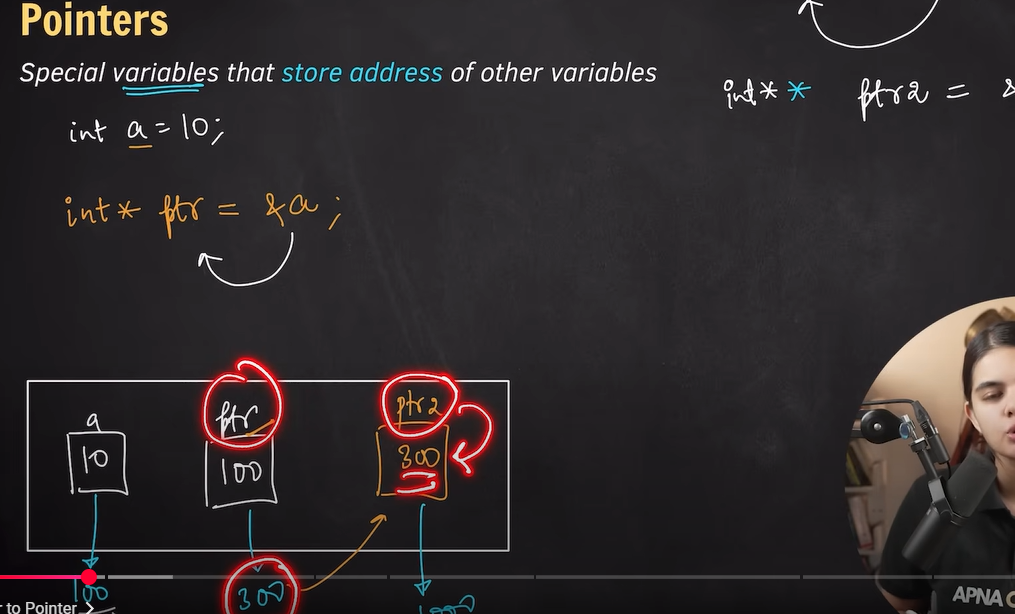 Pointers
Special variables that store address of other variables
int** ptr2 = &
int a = 10;
int* ptr = &a;
a ptr ptr2
10 100 300
100 300 1000
r to Pointer >
APNA C